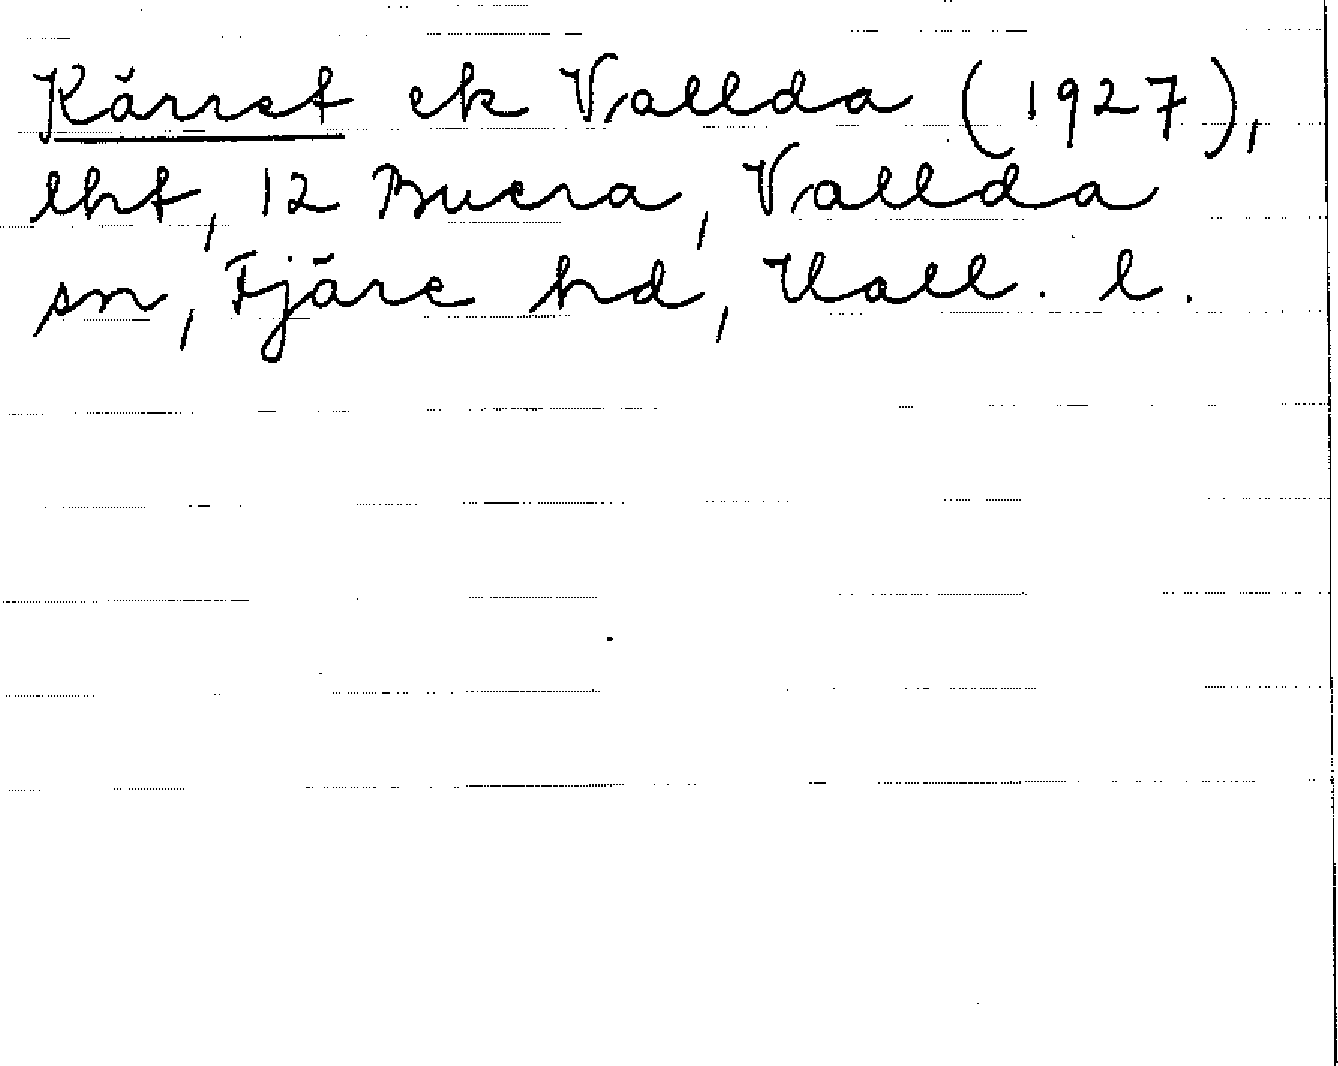 Kärret ek Vallda (1927),
lht, 12 Buera, Vallda
sn, Fjäre hd, Hall. l.